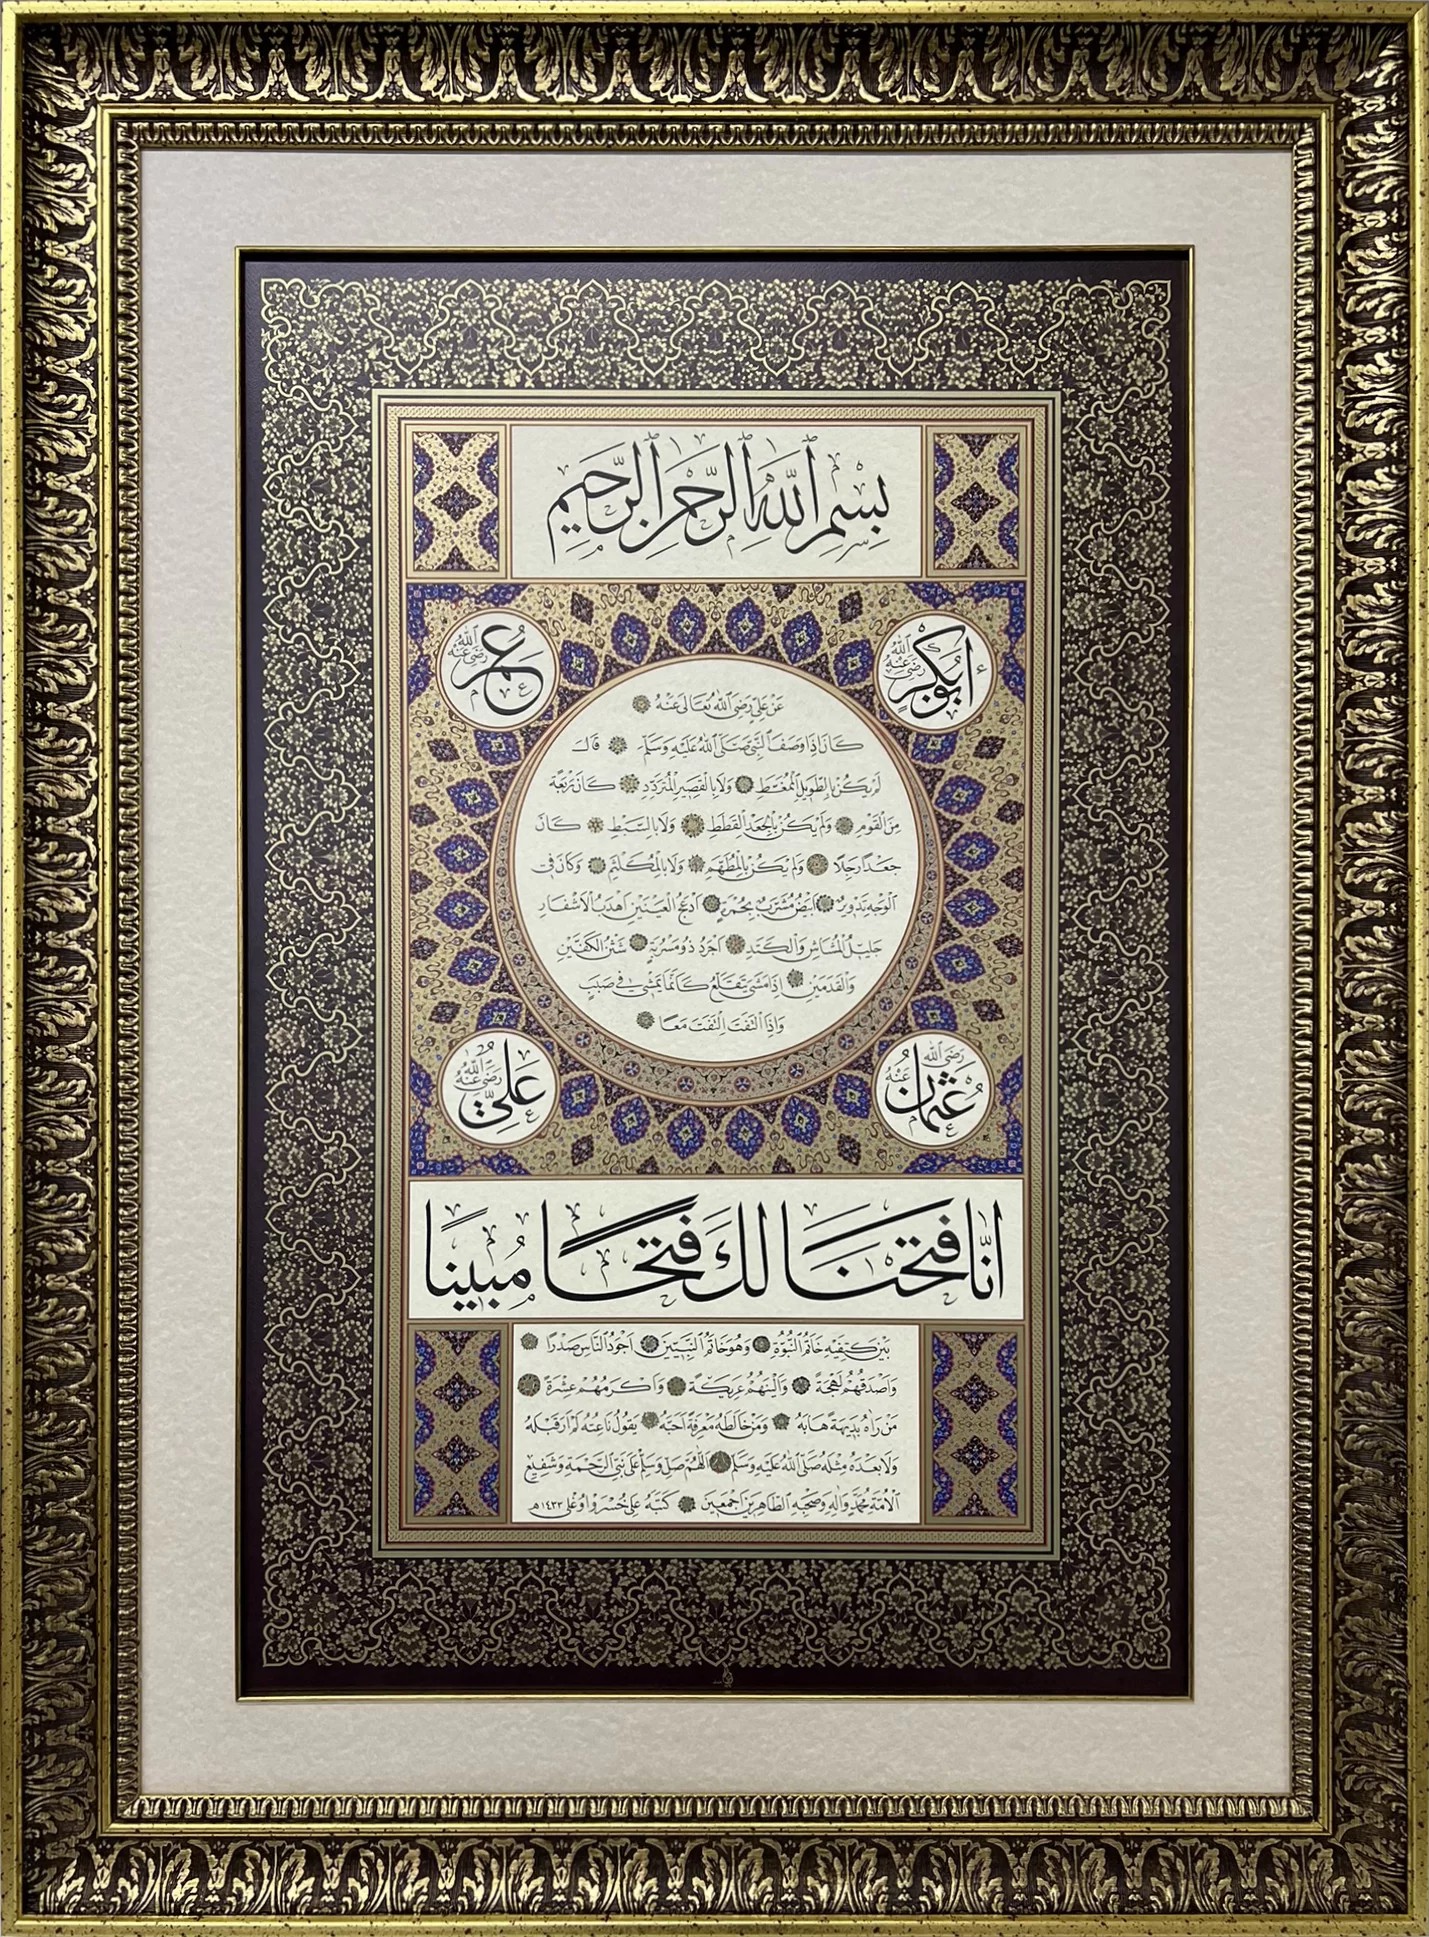 بِسْمِ اللّٰهِ الرَّحْمٰنِ الرَّحِيمِ
أَبُوبَكْرٍ رَضِيَ اللّٰهُ عَنْهُ
عُمَرُ رَضِيَ اللّٰهُ عَنْهُ
عَنْ عَلِيٍّ رَضِيَ اللّٰهُ تَعَالَى عَنْهُ
كَانَ اِذَا وَصَفَ النَّبِيَّ صَلَّى اللّٰهُ عَلَيْهِ وَسَلَّمَ قَالَ
لَمْ يَكُنْ بِالطَّوِيلِ الْمُمَّغِطِ وَلَا بِالْقَصِيرِ الْمُتَرَدِّدِ كَانَ رَبْعَةً
مِنَ الْقَوْمِ وَلَمْ يَكُنْ بِالْجَعْدِ الْقَطَطِ وَلَا بِالسَّبْطِ كَانَ
جَعْدًا رَجِلًا وَلَمْ يَكُنْ بِالْمُطَهَّمِ وَلَا بِالْمُكَلْثَمِ وَكَانَ فِى
الْوَجْهِ تَدْوِيرٌ اَبْيَضُ مُشْرَبٌ بِحُمْرَةٍ اَدْعَجُ الْعَيْنَيْنِ اَهْدَبُ الْاَشْفَارِ
جَلِيلُ الْمُشَاشِ وَالْكَتَدِ اَجْرَدُ ذُو مَسْرُبَةٍ شَثْنُ الْكَفَّيْنِ
وَالْقَدَمَيْنِ اِذَا مَشَى تَقَلَّعَ كَاَنَّمَا يَمْشِي فِى صَبَبٍ
وَاِذَا الْتَفَتَ الْتَفَتَ مَعًا
عُثْمَانُ رَضِيَ اللّٰهُ عَنْهُ
عَلِيٌّ رَضِيَ اللّٰهُ عَنْهُ
اِنَّا فَتَحْنَا لَكَ فَتْحًا مُبِينًا
بَيْنَ كَتِفَيْهِ خَاتَمُ النُّبُوَّةِ وَهُوَ خَاتَمُ النَّبِيِّينَ اَجْوَدُ النَّاسِ صَدْرًا
وَاَصْدَقُهُمْ لَهْجَةً وَاَلْيَنُهُمْ عَرِيكَةً وَاَكْرَمُهُمْ عِشْرَةً
مَنْ رَاٰهُ بَدِيهَةً هَابَهُ وَمَنْ خَالَطَهُ مَعْرِفَةً اَحَبَّهُ يَقُولُ نَاعِتُهُ لَمْ اَرَ قَبْلَهُ
وَلَا بَعْدَهُ مِثْلَهُ صَلَّى اللّٰهُ عَلَيْهِ وَسَلَّمَ اَللّٰهُمَّ صَلِّ وَسَلِّمْ عَلَى نَبِيِّ الرَّحْمَةِ وَشَفِيعِ
الْاُمَّةِ مُحَمَّدٍ وَاٰلِهِ وَصَحْبِهِ الطَّاهِرِينَ اَجْمَعِينَ كَتَبَهُ عَلِي خُسْرَوْ اُوغْلِى ١٤٣٣هـ